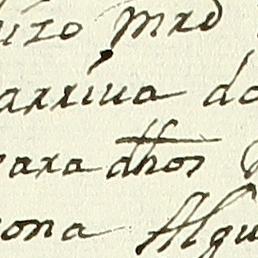 izo mrd
arriua do
para dhos
ona Algu